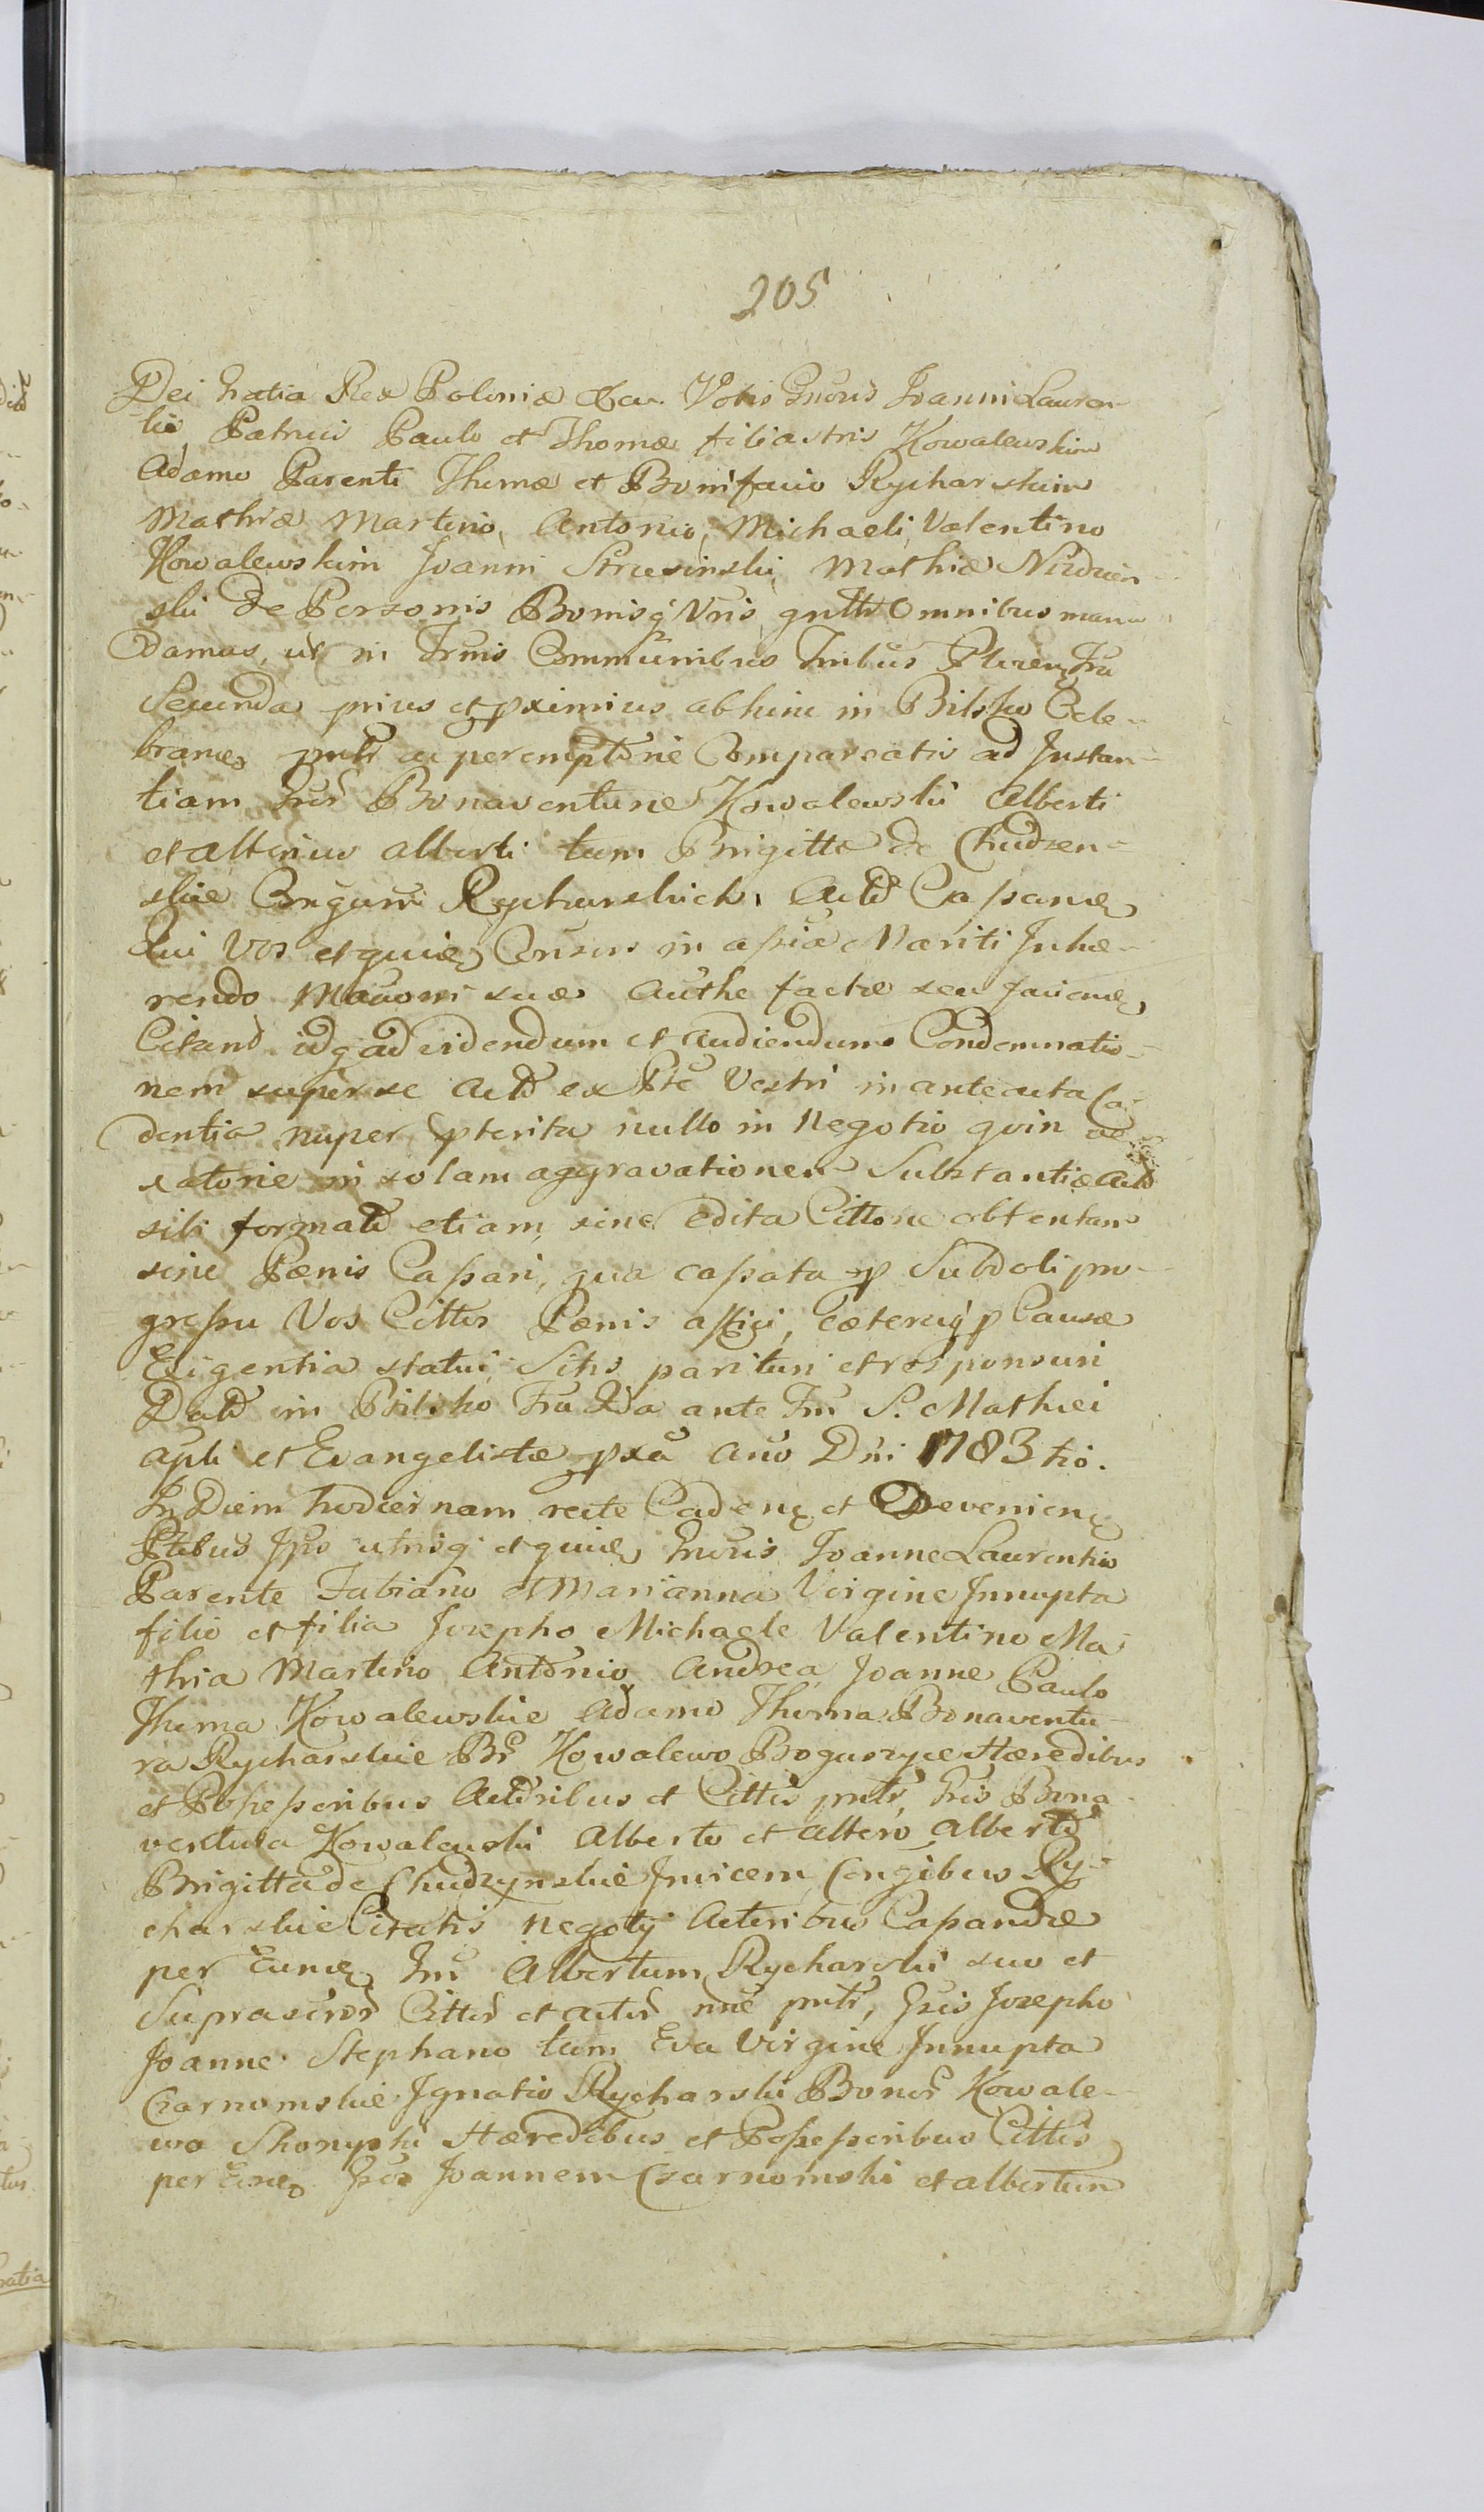 205
Dei Gratia Rex Poloniæ &cu. Vobis Gnosis Joanni Lauren-
tio Patruis Paulo et Thomæ filiastris Kowalewskim
Adamo Parenti Thomæ et Bonifacio Rycharskim
Mathiæ Martino, Antonio, Michaeli, Valentino
Kowalewskim Joanni Strusinski, Mathiæ
ski de Personis Bonisq Vris gnltr Omnibus man-
damus, ut in Trmis Communibus Tribus Plocen Fra
Secunda prius et pximius abhinc in Bilsko Cele-
brane, pntr ac peremptorie Compareatis ad Instan-
tiam Bonaventuræ Kowalewski Alberti
et alterius Alberti tum Brigittæ de Chudzen-
skie Conjgum Rycharskich Actor Cassane
Qui Vos et quie Cursus in assia Mæriti Inhæ-
rendo Maoni suæ Authe factæ seu faciene,
Citand idq ad videndum et audiendum Condemnatio-
nem super se Actor ex Pte Vestri in anteacta Ca-
dentia nuper pterita nullo in Negotio quin ve-
xatorie in solam aggravationem Substantiæ Actor
sibi formato etiam sine edita Cittone obtentam
sine Pænis Cassari, qua cassata p Subdoli pro-
gressu Vos Cittos Pænis affligi, cæteraq p Causæ
Exigentia statui, Sitis parituri et responsuri
Datt in Bilsko Fra 2da ante Fm S. Mathæi
Apli et Evangelistæ pxa Ano Dni 1783tio.
In Diem hodiernam recte Caden et Devenien
Ptibus Ipis utrisq et quie, Gnosis Joanne Laurentio
Parente Fabiano et Marianna Virgine Innupta
filio et filia Josepho Michaele Valentino Ma-
thia Martino Antonio Andrea Joanne Paulo
Thoma Kowalewskie Adamo Thoma Bonaventu-
ra Rycharskie Br Kowalewo Boguszyce Hæredibus
et Possessoribus Actoribus et Cittis pntr, Gsis Bona-
ventura Kowalewski Alberto et altero Alberto
Brigitta de Chudzynskie Invicem Congibus Ry-
charskie Citatis Negotij Actoribus Cassandæ
per Eume Gm Albertum Rycharski suo et
Suprascror Cittor et Actor nne pntr, Gsis Josepho
Joanne Stephano tum Eva Virgine Innupta
Czarnomskie Ignatio Rycharski Bonor Kowale-
wo Skorupki Hæredibus et Possessoribus Cittis
per Eume Gsos Joannem Czarnomski et Albertum